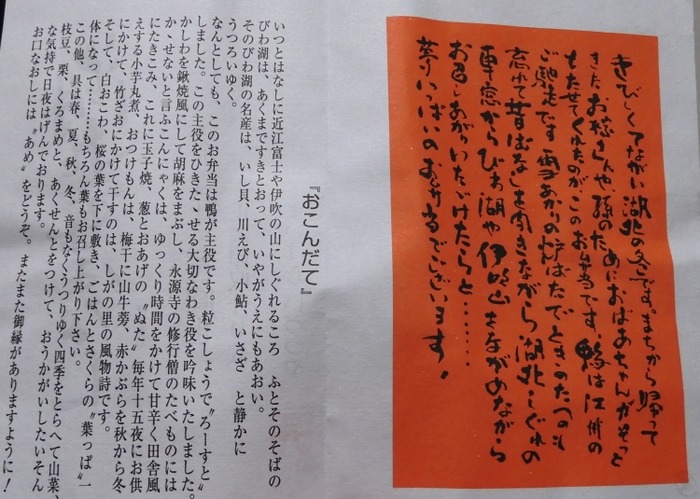 きびしくてながい湖北の冬です。まちから帰って
きたお慈さんや、孫のためにおばあちゃんがそっと
もたせてくれたのがこのお弁当です。鴨は江州の
ご馳走です 雪あかりの炉ばたでときのたつのも
忘れて昔ばなしを聞きながら湖北しぐれの
車窓からびわ湖や伊吹山をながめながら
お召しあがりいただけたらと……
夢いっぱいのお弁当でございます!
『おこんだて』
いつとはなしに近江富士や伊吹の山にしぐれるころ ふとそのそばの
びわ湖は、あくまですきとおって、いやがうえにもあおい。
そのびわ湖の名産は、いし貝、川えび、小鮎、いさざ と静かに
うつろいゆく。
なんとしても、このお弁当は鴨が主役です。粒こしょうで〝ろーすと〟
しました。この主役をひきた丶せる大切なわき役を吟味いたしました。
かしわを鍬焼風にして胡麻をまぶし、永源寺の修行僧のたべものには
か丶せないと言ふこんにゃくは、ゆっくり時間をかけて甘辛く田舎風
にたきこみ、これに玉子焼、葱とおあげの〝ぬた〟毎年十五夜にお供
えする小芋丸煮、おつけもんは、梅干に山牛蒡、赤かぶらを秋から冬
にかけて、竹ざおにかけて干すのは、しがの里の風物詩です。
そして、白おこわ、桜の葉を下に敷き、ごはんとさくらの〝葉っぱ〟一
体になって………もちろん葉もお召し上がり下さい。
この他、具は春、夏、秋、冬、音もなくうつりゆく四季をとらへて山菜、
枝豆、栗、くろまめと、あくせんとをつけて、おうかがいしたいそん
な気持で日夜はげんでおります。
お口なおしには〝あめ〟をどうぞ。またまた御縁がありますように!